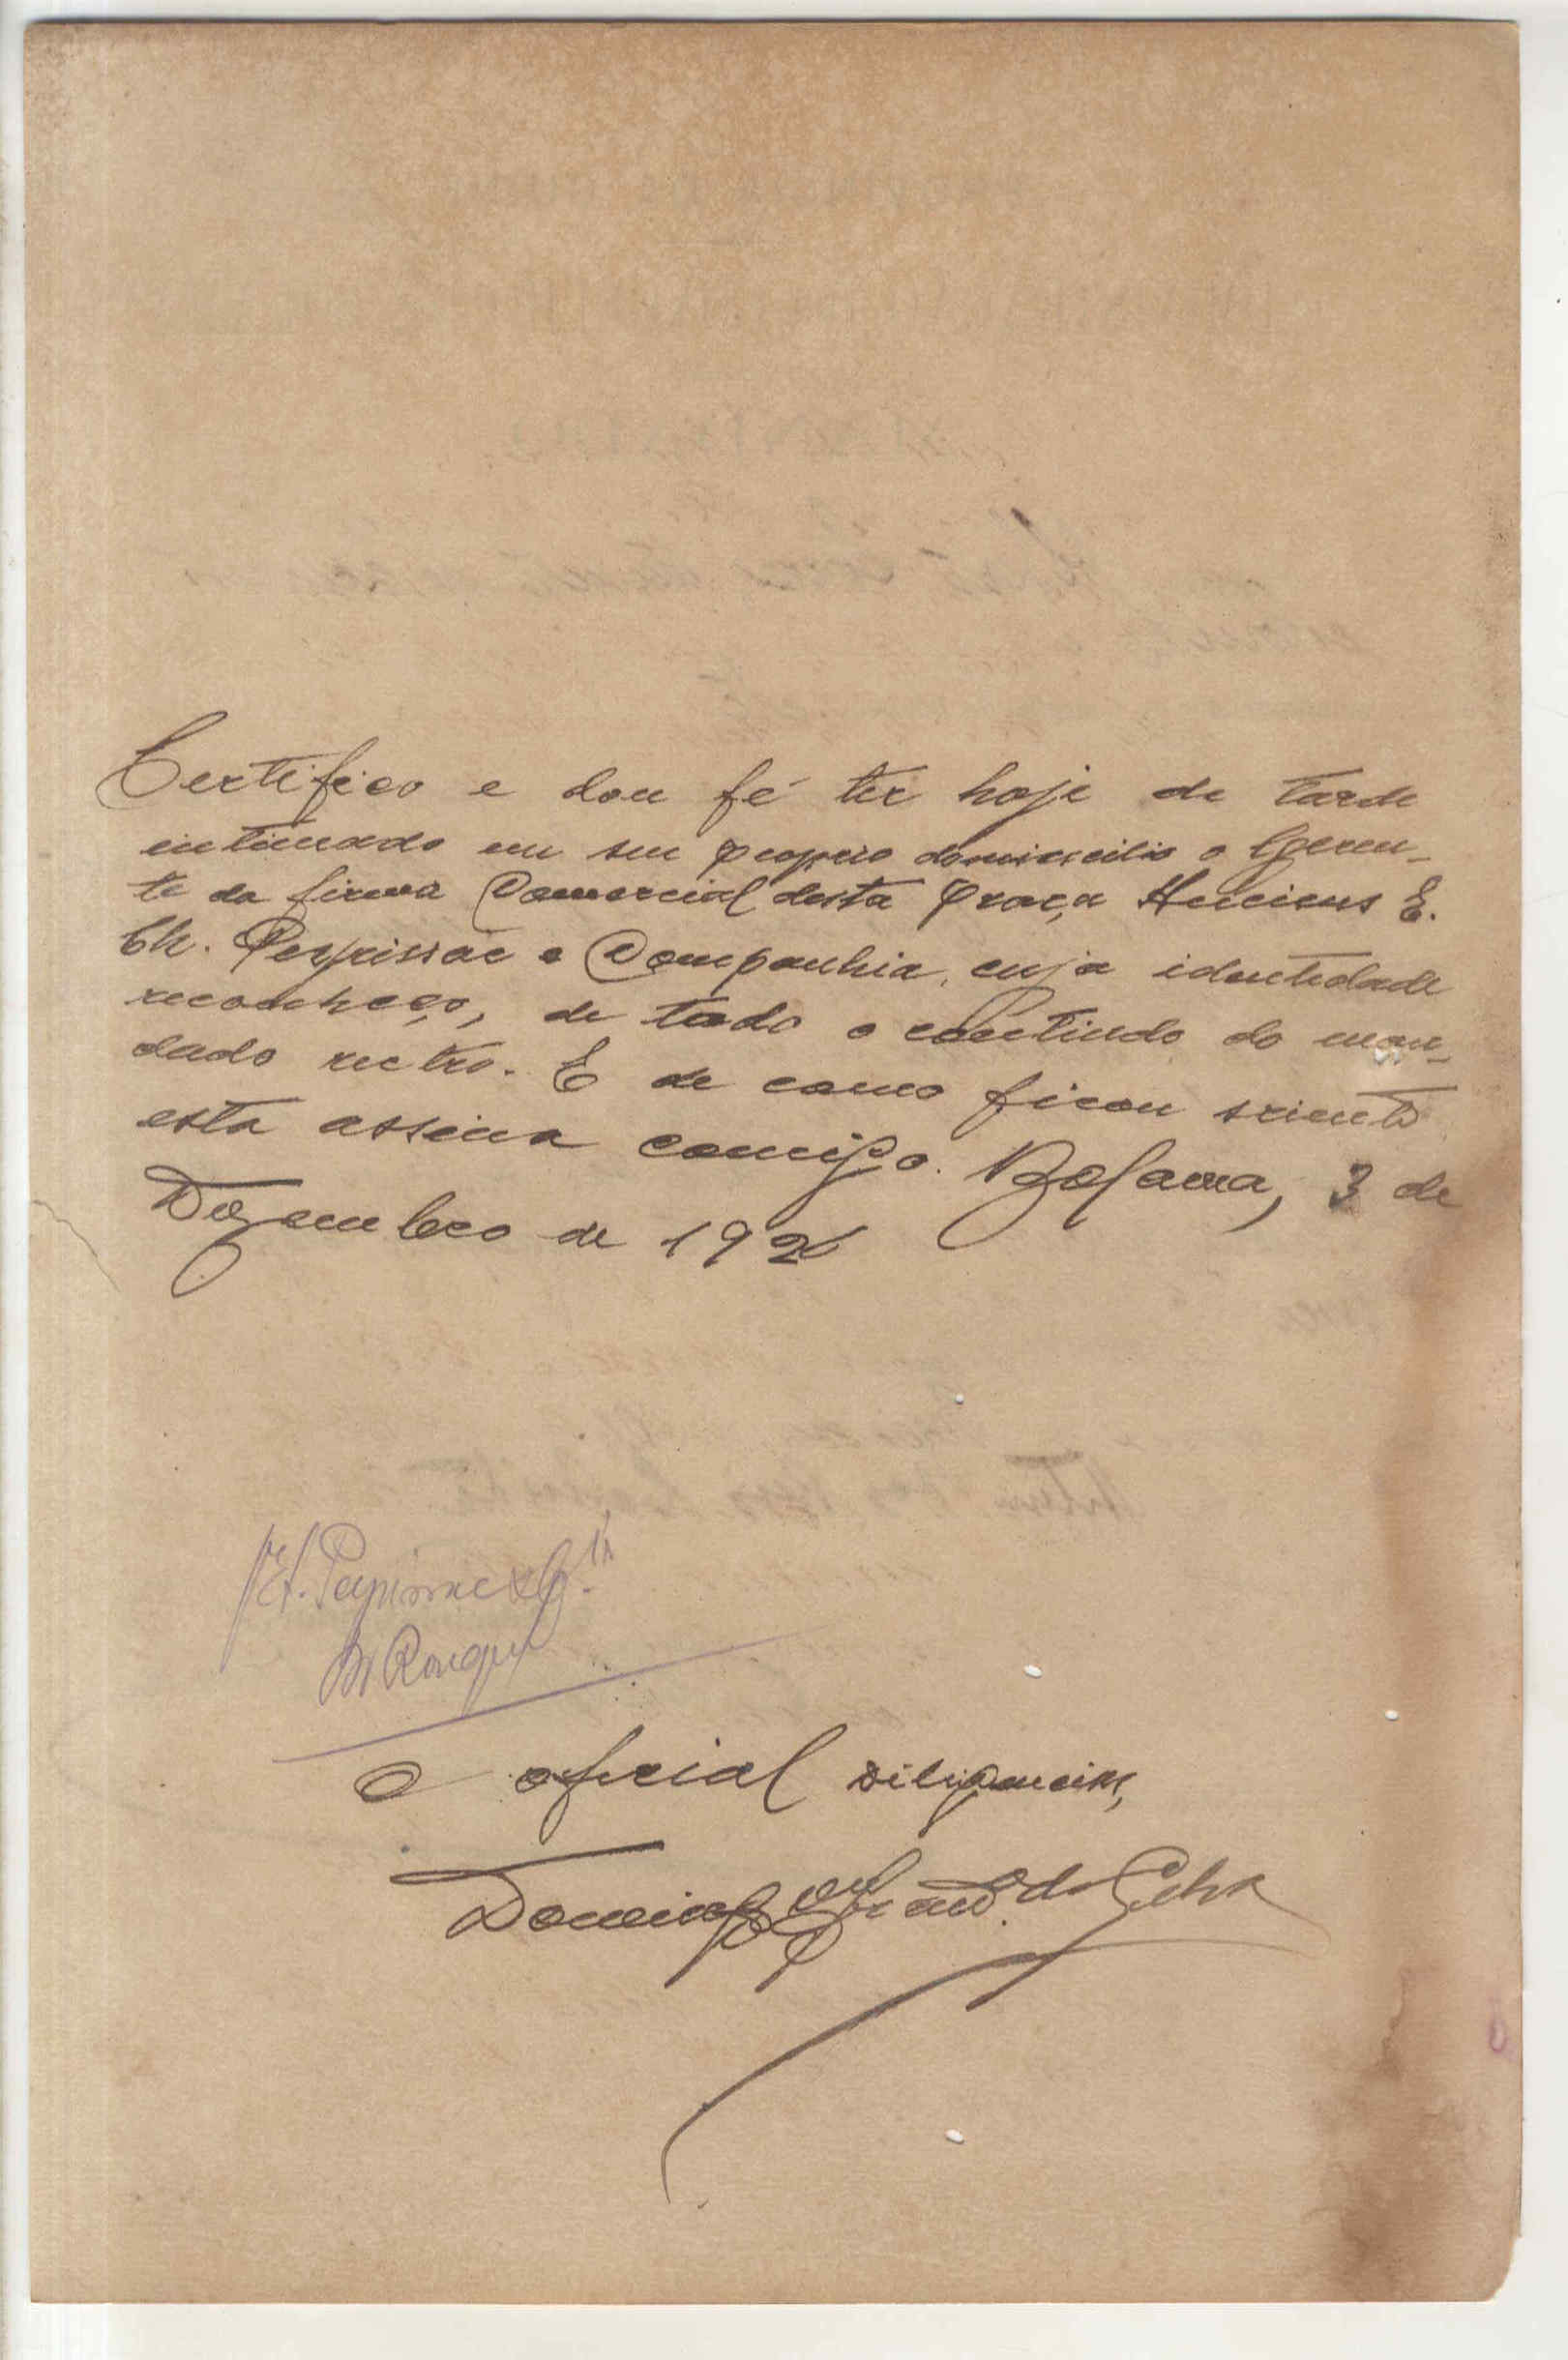 Certifico e dou fé ter hoje de tarde
intimado em seu proprio domincilio o Geren-
te da firma Comercial desta Praça Anciens E.
Ch. Peyrissac e Companhia, cuja identedade
reconheço, de todo o contiudo do man-
dado retro. E de como ficou sciente
esta assina comigo. Bolama, 3 de
Dezembro de 192
Peyrissac & Cⁱᵉ
O oficial Diligencias,
Domingos da Silva